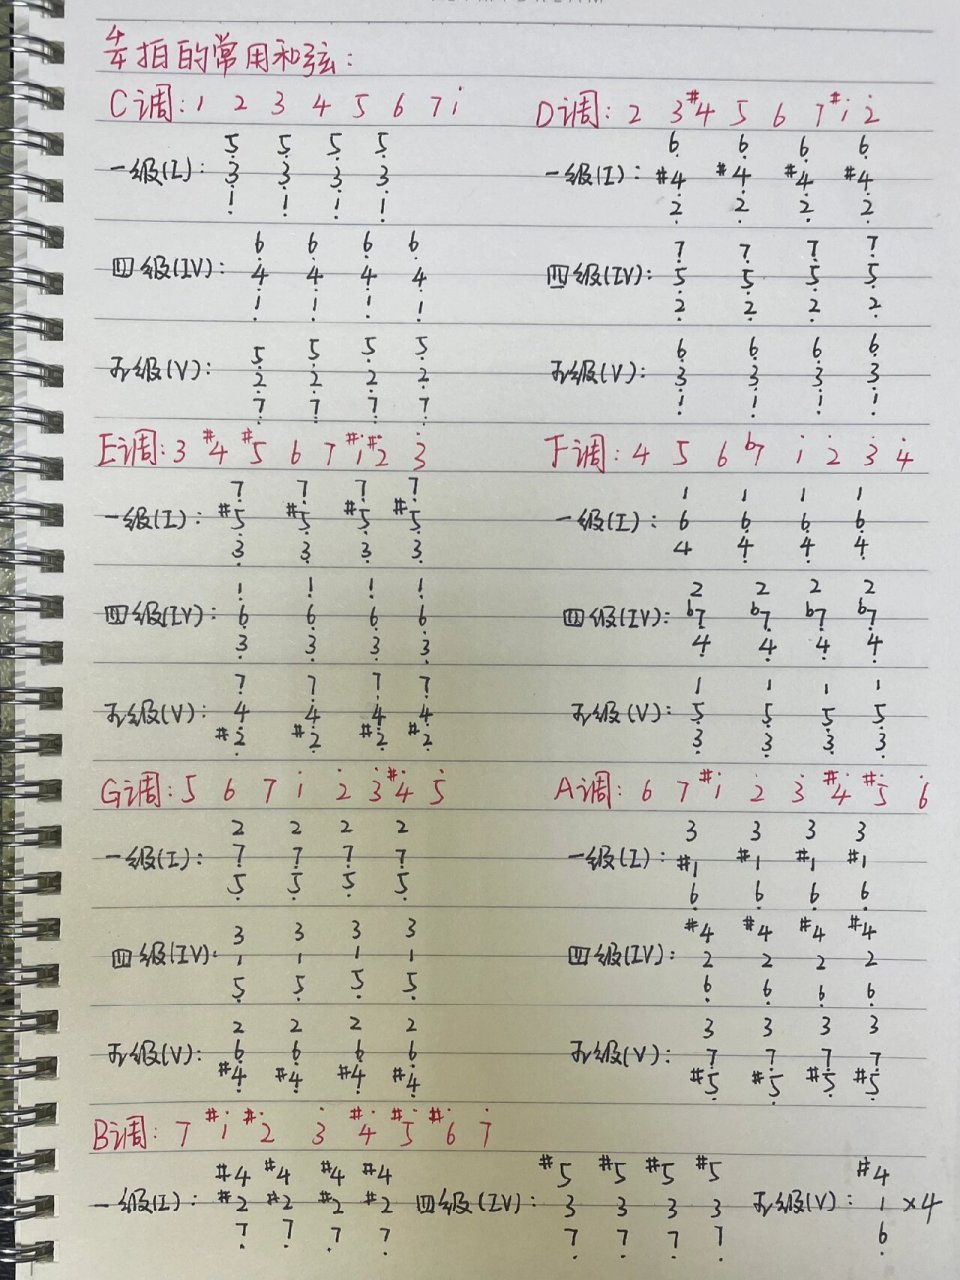 4/4拍的常用和弦:
C调: 1 2 3 4 5 6 7 1
5 5 5 5
一级(I): 3 3 3 3
1 1 1 1
6 6 6 6
四级(IV): 4 4 4 4
1 1 1 1
5 5 5 5
五级(V): 2 2 2 2
7 7 7 7
D调: 2 3 #4 5 6 7 #1 2
6 6 6 6
一级(I): #4 #4 #4 #4
2 2 2 2
7 7 7 7
四级(IV): 5 5 5 5
2 2 2 2
6 6 6 6
五级(V): 3 3 3 3
1 1 1 1
E调: 3 #4 #5 6 7 #1 #2 3
7 7 7 7
一级(I): #5 #5 #5 #5
3 3 3 3
1 1 1 1
四级(IV): 6 6 6 6
3 3 3 3
7 7 7 7
五级(V): 4 4 4 4
#2 #2 #2 #2
F调: 4 5 6 b7 1 2 3 4
1 1 1 1
一级(I): 6 6 6 6
4 4 4 4
2 2 2 2
四级(IV): b7 b7 b7 b7
4 4 4 4
1 1 1 1
五级(V): 5 5 5 5
3 3 3 3
G调: 5 6 7 1 2 3 #4 5
2 2 2 2
一级(I): 7 7 7 7
5 5 5 5
3 3 3 3
四级(IV): 1 1 1 1
5 5 5 5
2 2 2 2
五级(V): 6 6 6 6
#4 #4 #4 #4
A调: 6 7 #1 2 3 #4 #5 6
3 3 3 3
一级(I): #1 #1 #1 #1
6 6 6 6
#4 #4 #4 #4
四级(IV): 2 2 2 2
6 6 6 6
3 3 3 3
五级(V): 7 7 7 7
#5 #5 #5 #5
B调: 7 #1 #2 3 #4 #5 #6 7
#4 #4 #4 #4
一级(I): #2 #2 #2 #2
7 7 7 7
#5 #5 #5 #5
四级(IV): 3 3 3 3
7 7 7 7
#4
五级(V): 1 ×4
6